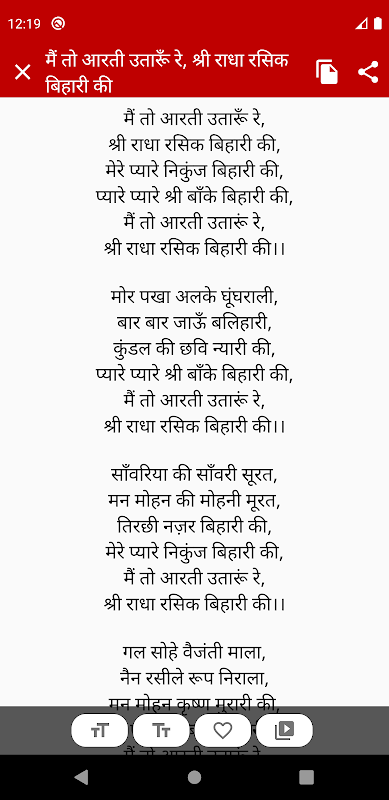 12:19
मैं तो आरती उतारूँ रे, श्री राधा रसिक
बिहारी की
मैं तो आरती उतारूँ रे,
श्री राधा रसिक बिहारी की,
मेरे प्यारे निकुंज बिहारी की,
प्यारे प्यारे श्री बाँके बिहारी की,
मैं तो आरती उतारूं रे,
श्री राधा रसिक बिहारी की।।
मोर पखा अलके घूंघराली,
बार बार जाऊँ बलिहारी,
कुंडल की छवि न्यारी की,
प्यारे प्यारे श्री बाँके बिहारी की,
मैं तो आरती उतारूं रे,
श्री राधा रसिक बिहारी की।।
साँवरिया की साँवरी सूरत,
मन मोहन की मोहनी मूरत,
तिरछी नज़र बिहारी की,
मेरे प्यारे निकुंज बिहारी की,
मैं तो आरती उतारूं रे,
श्री राधा रसिक बिहारी की।।
गल सोहे वैजंती माला,
नैन रसीले रूप निराला,
मन मोहन कृष्ण मुरारी की,
मैं तो आरती उतारूं रे,